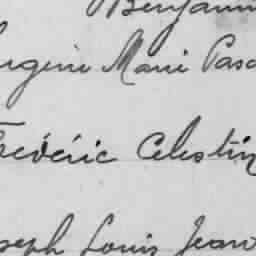 Benjamin
ugene Marie Pasc
Frédéric Celestin
seph Louis Jean